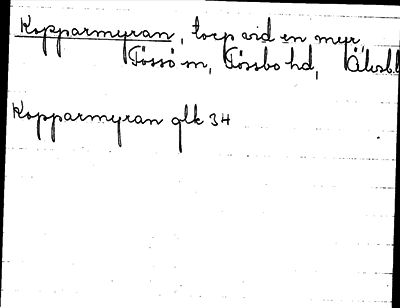 Kopparmyran, torp vid en myr,
Tössö sn, Tössbo hd, Älvsbl
Kopparmyran glk 34